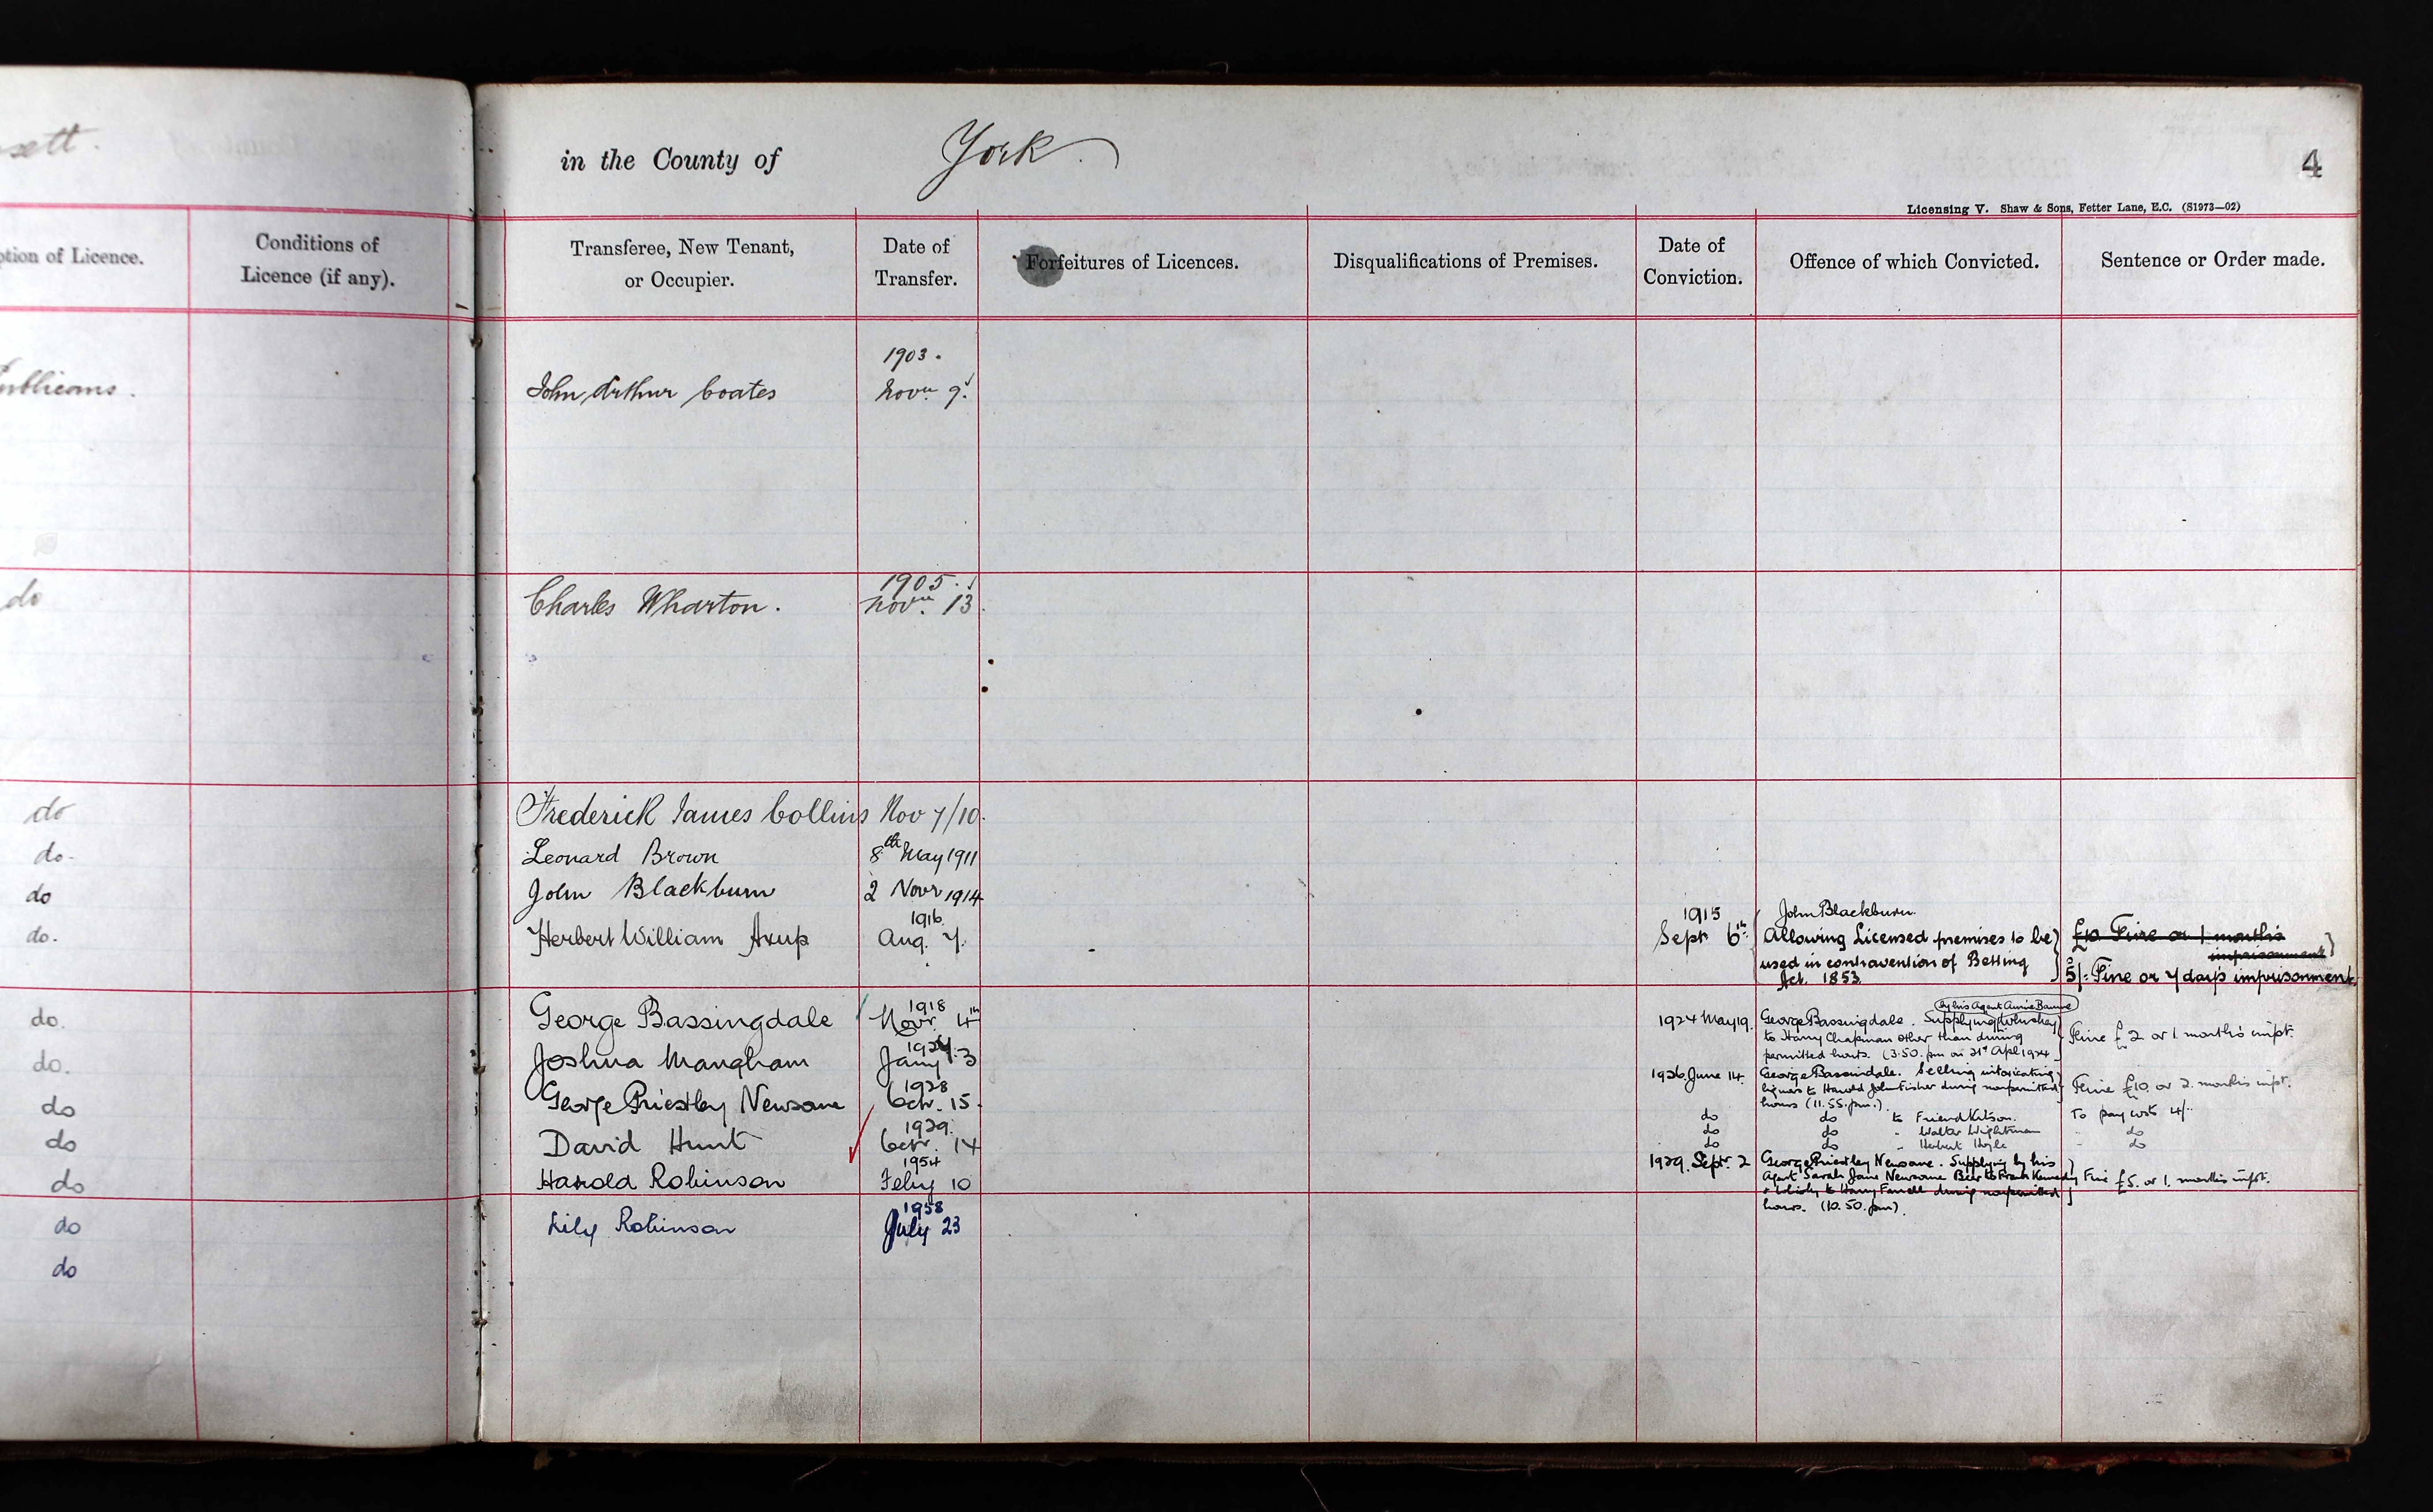 sett.
in the County of York.
4
Licensing V. Shaw & Sons, Fetter Lane, E.C. (S1973—02)
ption of Licence.
Conditions of
Licence (if any).
Transferee, New Tenant,
or Occupier.
Date of
Transfer.
Forfeitures of Licences.
Disqualifications of Premises.
Date of
Conviction.
Offence of which Convicted.
Sentence or Order made.
1903.
ublicans. John Arthur Coates Novr 9.
1905.
do Charles Wharton. Novr. 13
do Frederick James Collins Nov 7/10.
do. Leonard Brown 8th May 1911
do John Blackburn 2 Novr 1914
1916
do. Herbert William Axup Aug. 7.
1915
Sept 6th
John Blackburn.
Allowing Licensed premises to be
used in contravention of Betting
Act. 1853.
£10 Fine or 1 month's
imprisonment
5/- Fine or 7 days imprisonment.
1918
do. George Bassingdale Novr. 4th
do. Joshua Mangham Jany 3
1928
do George Priestley Newsome Octr. 15.
1929.
do David Hunt Octr. 14
1954
do Harold Robinson Feby 10
1958
do Lily Robinson July 23
do
1924 May 19.
by his Agent Annie
George Bassingdale. Supplying Whiskey
to Harry Chapman other than during
permitted hours. (3.50. pm on 21st Apl 1924
Fine £2 or 1 month's impt.
1926 June 14.
George Bassindale. Selling intoxicating
liquors to Harold John Fisher during nonpermitted
hours (11.55. pm.).
Fine £10. or 2. months impt.
do do to Friend Kitson. To pay costs 4/-
do do " Walter Wightman " do
do do " Herbert Hoyle " do
1929. Septr. 2
George Priestley Newsome. Supplying by his
Agent Sarah Jane Newsome Beer to Frank Kennedy
& Whisky to Harry Farrell during nonpermitted
hours. (10.50. pm).
Fine £5. or 1. months impt.